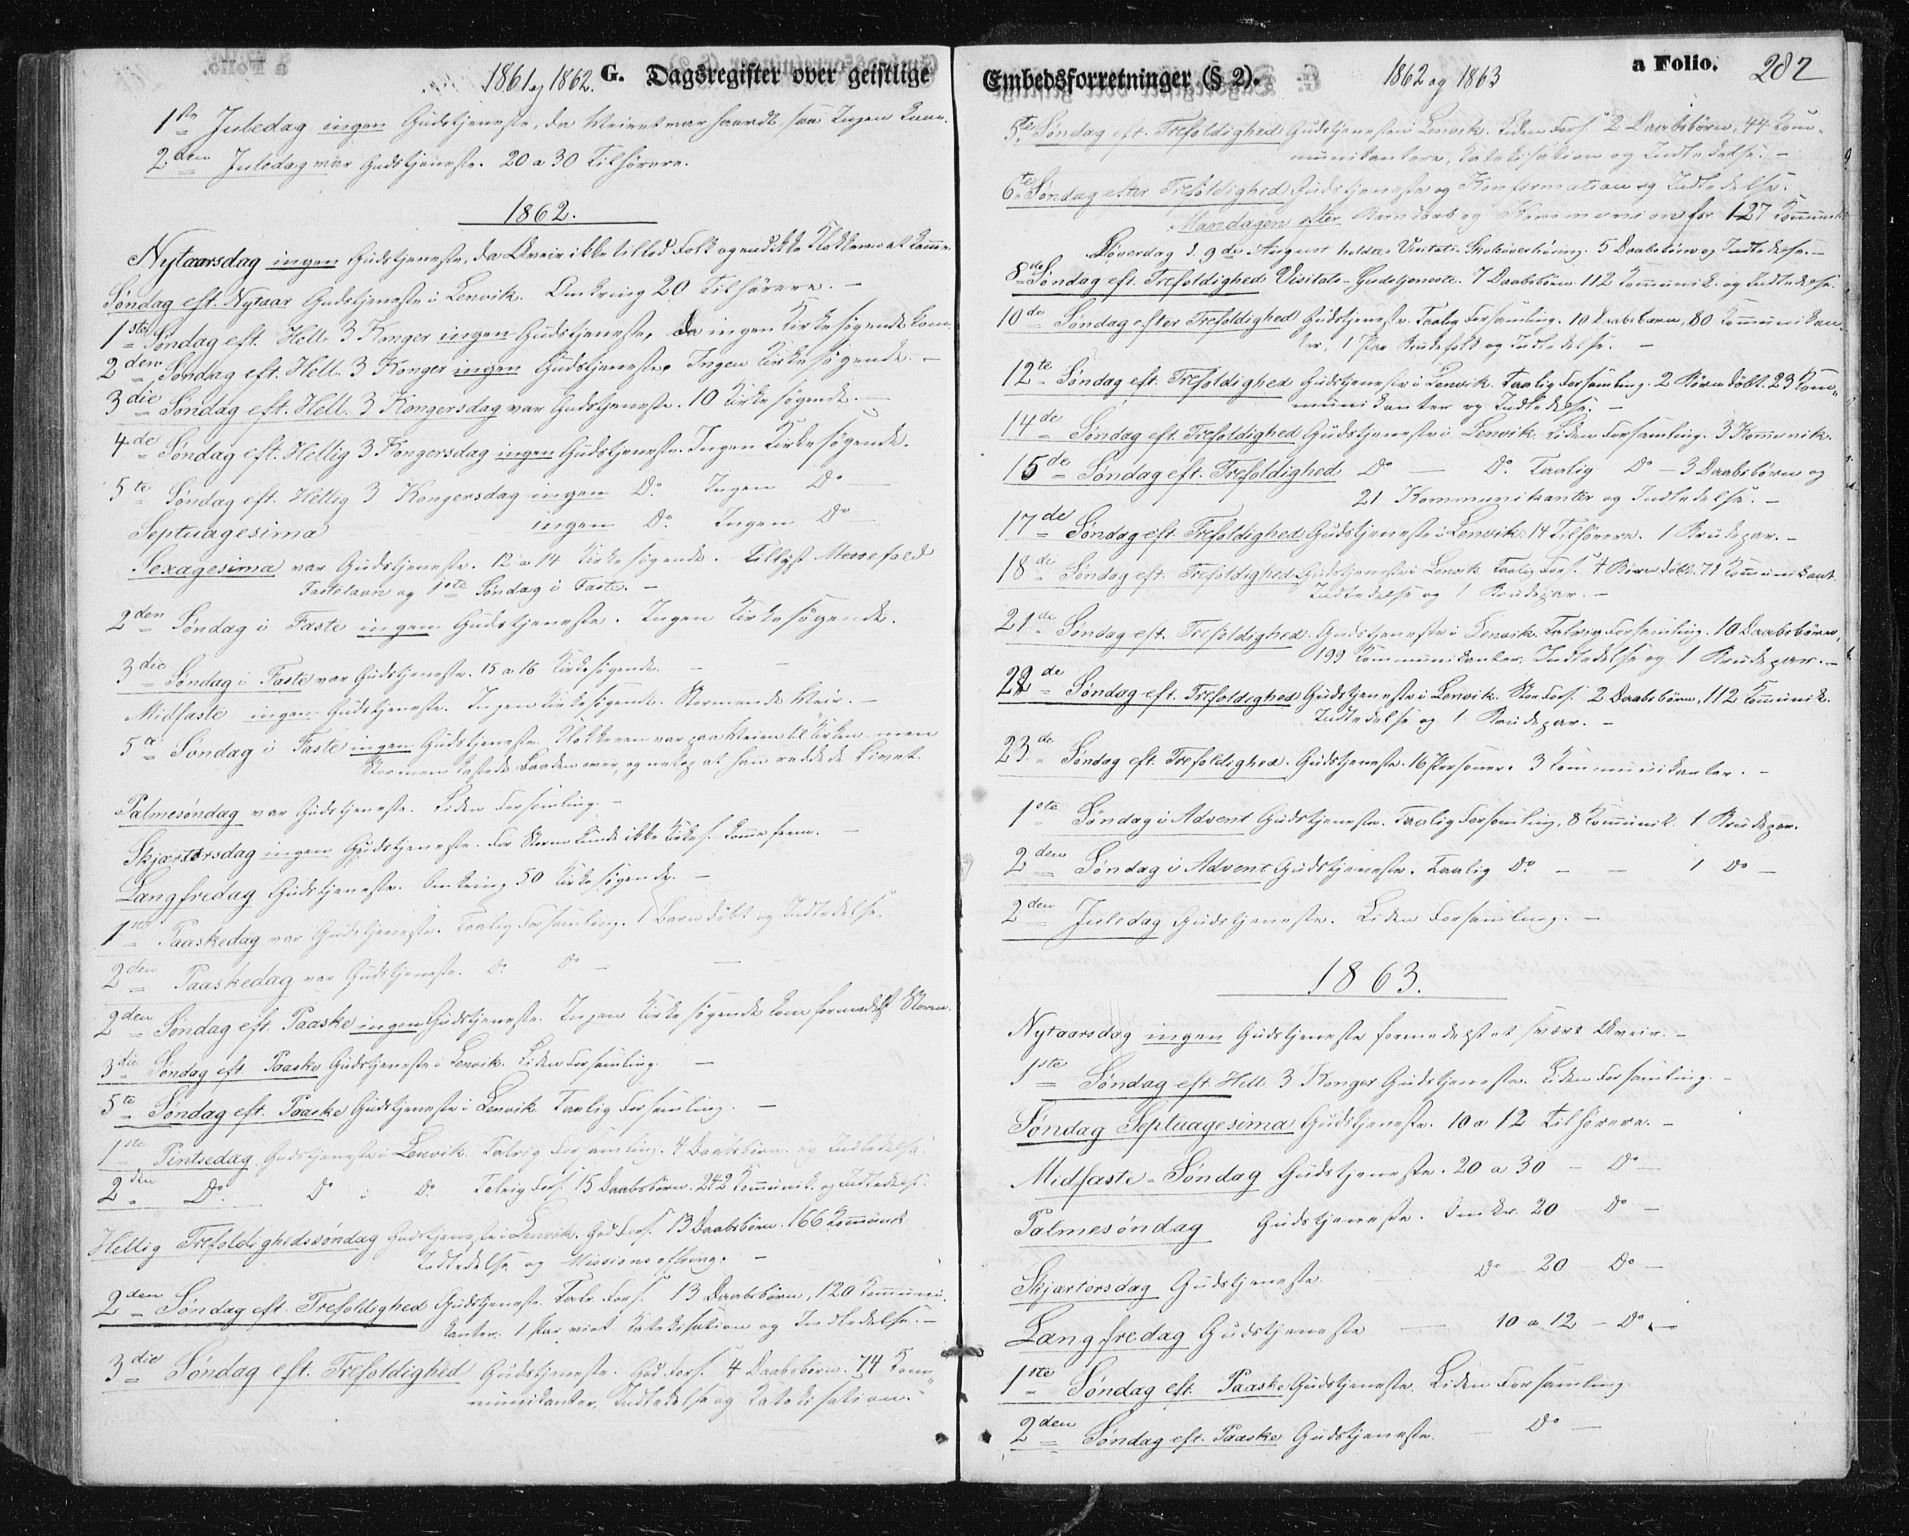 1861 og 1862. G. Dagsregister over geistlige
1ste Juledag ingen Gudstjeneste, da Veiret var haardt, saa Ingen kom.
2den Juledag var Gudstjeneste. 20 a 30 Tilhørere.
1862.
Nytaarsdag ingen Gudstjeneste, da Uveir ikke tillod Folk og end ikke Klokkeren at komme.
Søndag eft. Nytaar Gudstjeneste i Lenvik. Omkring 20 Tilhørere. -
1ste Søndag eft. Hell. 3 Konger ingen Gudstjeneste, da ingen Kirkesøgende kom.
2den Søndag eft. Hell. 3 Konger ingen Gudstjeneste. Ingen Kirkesøgende. -
3die Søndag eft. Hell. 3 Kongersdag var Gudstjeneste. 10 Kirkesøgende. -
4de Søndag eft. Hellig 3 Kongersdag ingen Gudstjeneste. Ingen Kirkesøgende.
5te Søndag eft. Hellig 3 Kongersdag ingen Do. Ingen Do -
Septuagesima ingen Do. Ingen Do -
Sexagesima var Gudstjeneste. 12 a 14 Kirkesøgende. Tillyst Messefald
Fastelavn og 1ste Søndag i Faste. -
2den Søndag i Faste ingen Gudstjeneste. Ingen Kirkesøgende.
3die Søndag i Faste var Gudstjeneste. 15 a 16 Kirkesøgende. -
Midfaste ingen Gudstjeneste. Ingen Kirkesøgende. Stormende Veir. -
5te Søndag i Faste ingen Gudstjeneste. Klokkeren var paa Veien til Kirken, men
Stormen kastede Baaden over, og netop at han reddede Livet.
Palmesøndag var Gudstjeneste. Liden Forsamling. -
Skjærtorsdag ingen Gudstjeneste. For Storm kunde ikke Kirkes. komme frem. -
Langfredag Gudstjeneste. Omkring 50 Kirkesøgende. -
1ste Paaskedag var Gudstjeneste. Taalig Forsamling. 1 Barn døbt og Indledelse.
2den Paaskedag var Gudstjeneste. Do Do -
2den Søndag eft. Paaske ingen Gudstjeneste. Ingen Kirkesøgende kom formedelst Storm.
3die Søndag eft. Paaske Gudstjeneste i Lenvik. Liden Forsamling. -
5te Søndag eft. Paaske Gudstjeneste i Lenvik. Taalig Forsamling. -
1ste Pintsedag Gudstjeneste i Lenvik. Talrig Forsamling. 4 Daabsbørn og Indledelse.
2den Do. Do i Do. Talrig Fors. 15 Daabsbørn. 242 Kommunik. og Indledelse.
Hellig Trefoldighedssøndag Gudstjeneste i Lenvik. God Fors. 13 Daabsbørn. 166 Kommunik.
Indledelse og Missionsofring. -
2den Søndag eft. Trefoldighed Gudstjeneste. Talr. Fors. 13 Daabsbørn, 120 Kommuni-
kanter. 1 Par viet. Katekisation og Indledelse. -
3die Søndag eft. Trefoldighed Gudstjeneste. God Fors. 4 Daabsbørn. 74 Kom-
munikanter. Indledelse og Katekisation.
Embedsforretninger (§ 2). 1862 og 1863 a Folio. 282
5te Søndag eft. Trefoldighed Gudstjeneste i Lenvik. Liden Fors. 2 Daabsbørn, 44 Kom-
munikantere, Katekisation og Indledelse. -
6te Søndag efter Trefoldighed Gudstjeneste og Konfirmation og Indledelse.
Mandagen efter Barndaab og Kommunion for 127 Kommunik.
Løverdag d. 9de August holdtes Visitats-Skoleoverhøring. 5 Daabsbørn og Indledelse. -
8de Søndag eft. Trefoldighed Visitats-Gudstjeneste. 7 Daabsbørn 112 Kommunik. og Indledelse.
10de Søndag efter Trefoldighed Gudstjeneste. Taalig Forsamling. 10 Daabsbørn, 80 Kommunikan-
ter, 1 Par Brudefolk og Indledelse. -
12te Søndag eft. Trefoldighed Gudstjeneste i Lenvik. Taalig Forsamling. 2 Børn døbt. 23 Kom-
munikanter og Indledelse. -
14de Søndag eft. Trefoldighed Gudstjeneste i Lenvik. Liden Forsamling. 3 Kommunik.
15de Søndag eft. Trefoldighed Do - Do. Taalig Do - 3 Daabsbørn og
21 Kommunikanter og Indledelse. -
17de Søndag eft. Trefoldighed Gudstjeneste i Lenvik. 14 Tilhørere. 1 Brudepar. -
18de Søndag eft. Trefoldighed Gudstjeneste i Lenvik. Taalig Fors. 4 Børn døbt. 71 Kommunikant.
Indledelse og 1 Brudepar. -
21de Søndag eft. Trefoldighed. Gudstjeneste i Lenvik. Talrig Forsamling. 10 Daabsbørn,
199 Kommunikanter. Indledelse og 1 Brudepar. -
22de Søndag eft. Trefoldighed Gudstjeneste i Lenvik. Stor Fors. 2 Daabsbørn, 112 Kommunik.
Indledelse og 1 Brudepar. -
23de Søndag eft. Trefoldighed. Gudstjeneste. 16 Personer. 3 Kommunikanter. -
1ste Søndag i Advent Gudstjeneste. Taalig Forsamling. 8 Kommunik. 1 Brudepar.
2den Søndag i Advent Gudstjeneste. Taalig Do. - - 1 Do -
2den Juledag Gudstjeneste. Liden Forsamling. -
1863.
Nytaarsdag ingen Gudstjeneste formedelst et svært Uveir. -
1ste Søndag eft. Hell. 3 Konger Gudstjeneste. Liden Forsamling. -
Søndag Septuagesima Gudstjeneste. 10 a 12 Tilhørere. -
Midfaste-Søndag Gudstjeneste. 20 a 30 - Do -
Palmesøndag Gudstjeneste. Omkr. 20 - Do -
Skjærtorsdag Gudstjeneste. Do - 20 - Do -
Langfredag Gudstjeneste - 10 a 12 - Do. -
1ste Søndag eft. Paaske Gudstjeneste. Liden Forsamling.
2den Søndag eft. Paaske Gudstjeneste. - Do -